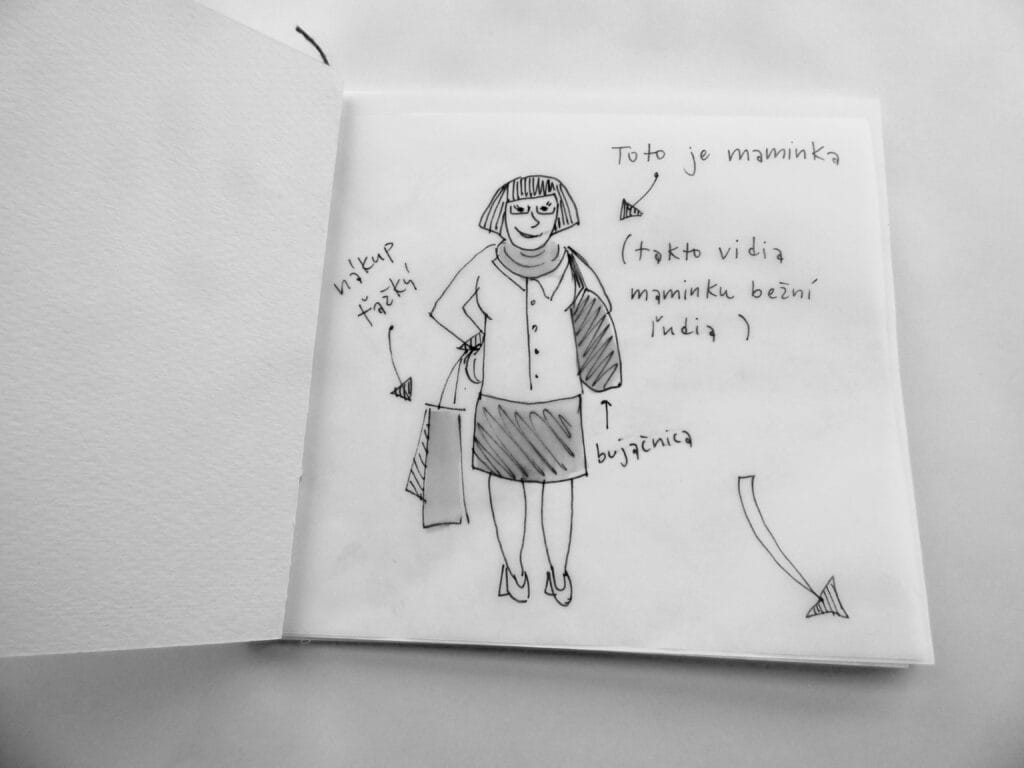 Toto je maminka
(takto vidia
maminku bežní
ľudia )
nákup
ťažký
bujačnica